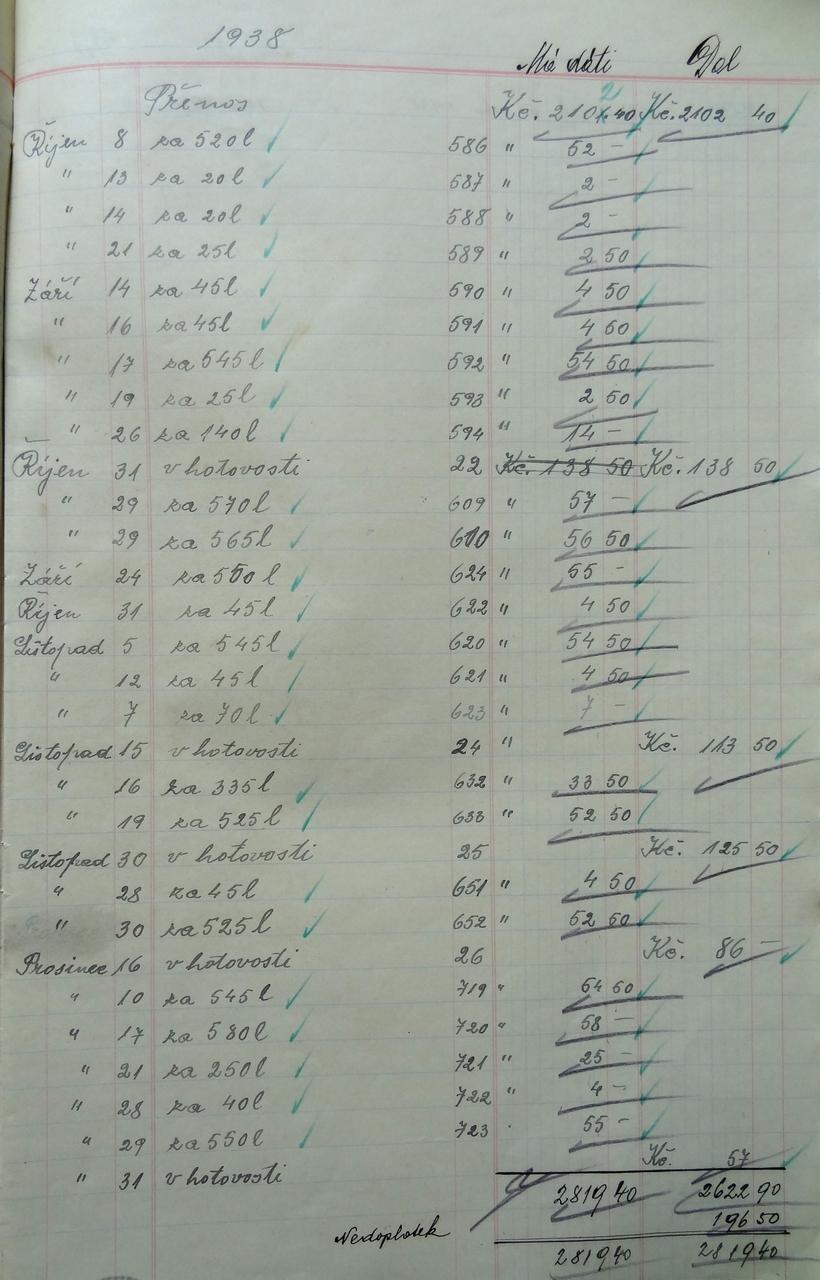 1938
Má dáti Dal
Přenos Kč. 2102 40 Kč. 2102 40
Říjen 8 za 520l 586 " 52 -
" 13 za 20l 587 " 2 -
" 14 za 20l 588 " 2 -
" 21 za 25l 589 " 2 50
Září 14 za 45l 590 " 4 50
" 16 za 45l 591 " 4 50
" 17 za 545l 592 " 54 50
" 19 za 25l 593 " 2 50
" 26 za 140l 594 " 14 -
Říjen 31 v hotovosti 22 Kč. 138 50 Kč. 138 50
" 29 za 570l 609 " 57 -
" 29 za 565l 610 " 56 50
Září 24 za 550l 624 " 55 -
Říjen 31 za 45l 622 " 4 50
Listopad 5 za 545l 620 " 54 50
" 12 za 45l 621 " 4 50
" 7 za 70l 623 " 7 -
Listopad 15 v hotovosti 24 " Kč. 113 50
" 16 za 335l 632 " 33 50
" 19 za 525l 633 " 52 50
Listopad 30 v hotovosti 25 Kč. 125 50
" 28 za 45l 651 " 4 50
" 30 za 525l 652 " 52 50
Prosinec 16 v hotovosti 26 Kč. 86 -
" 10 za 545l 719 " 54 50
" 17 za 580l 720 " 58 -
" 21 za 250l 721 " 25 -
" 28 za 40l 722 " 4 -
" 29 za 550l 723 . 55 -
" 31 v hotovosti Kč. 57
2819 40 2622 90
Nedoplatek 196 50
2819 40 2819 40